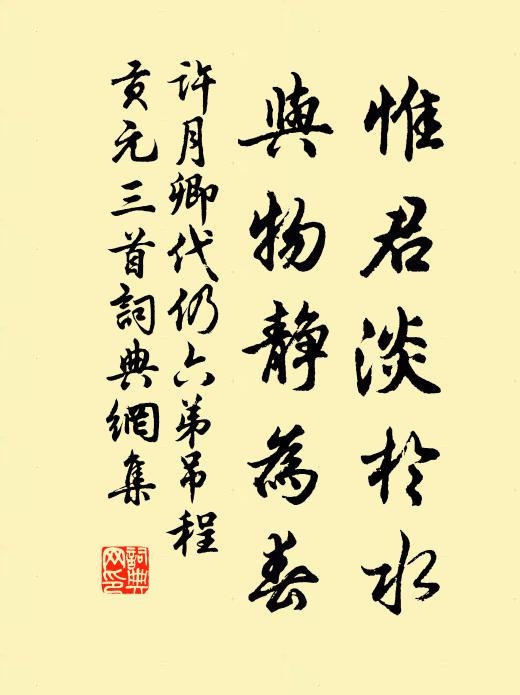 惟君淡於水
與物静為春
許月卿代仍六弟吊程
貢元三首詞典網集
詞典网印